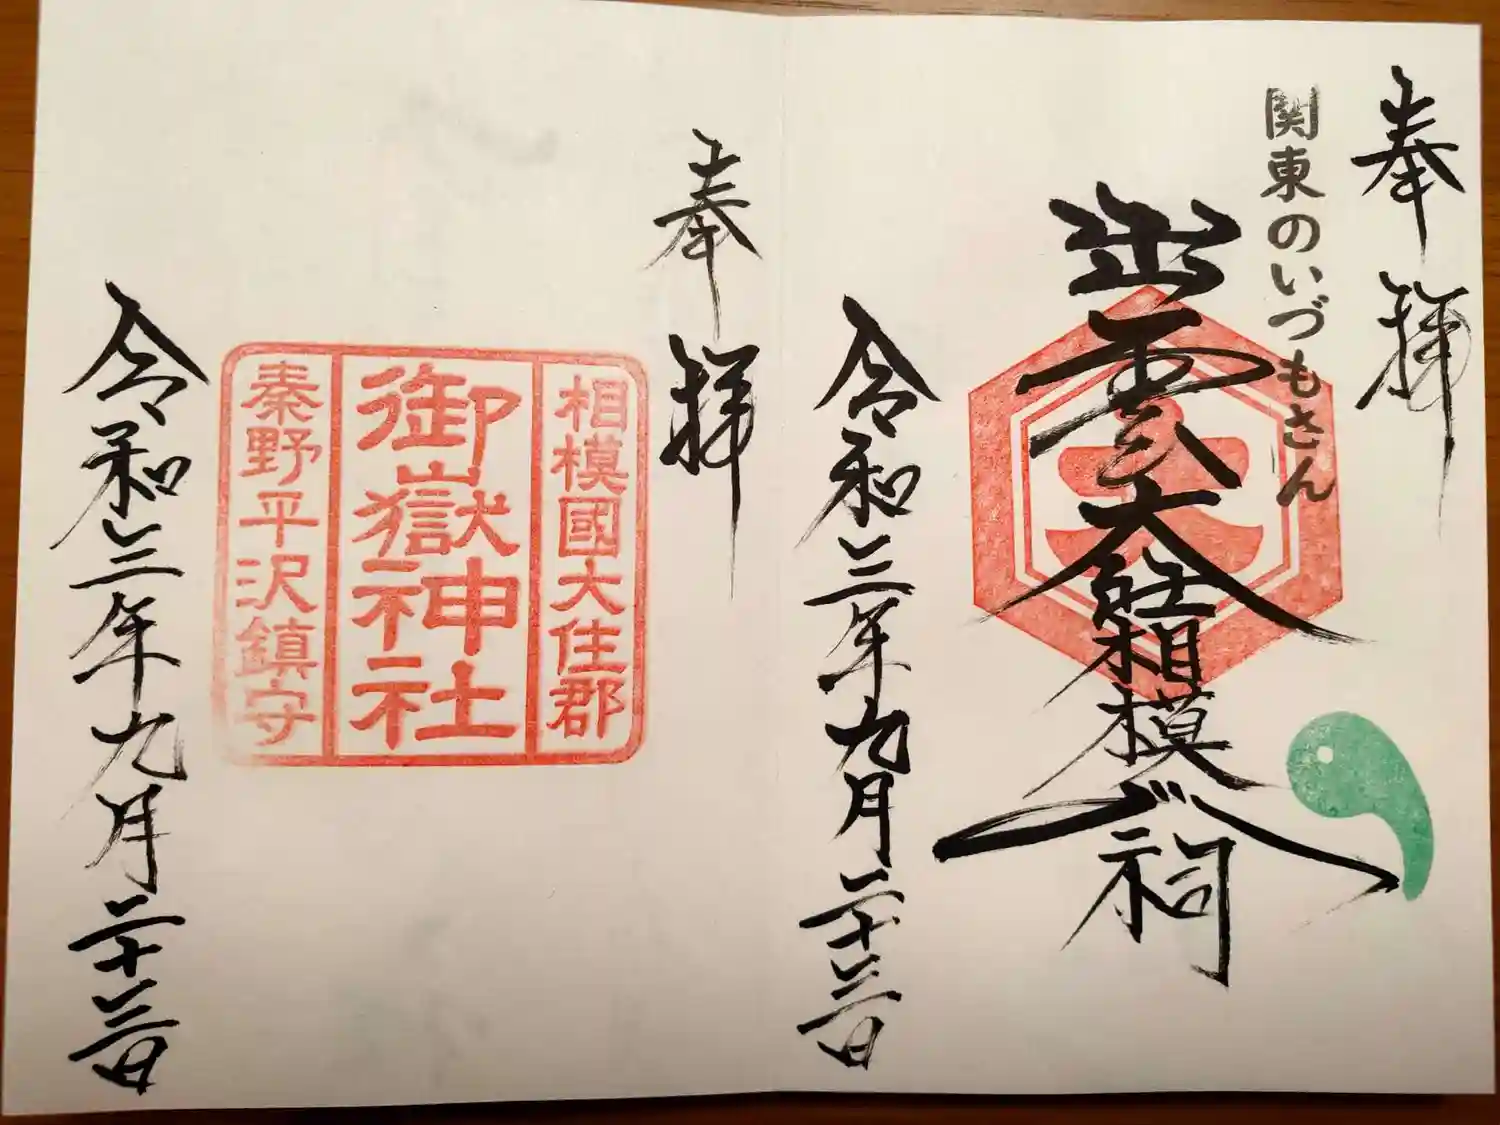 奉拝
関東のいづもさん
出雲大社相模分祠
令和三年九月二十三日
奉拝
相模國大住郡
御嶽神社
秦野平沢鎮守
令和三年九月二十三日